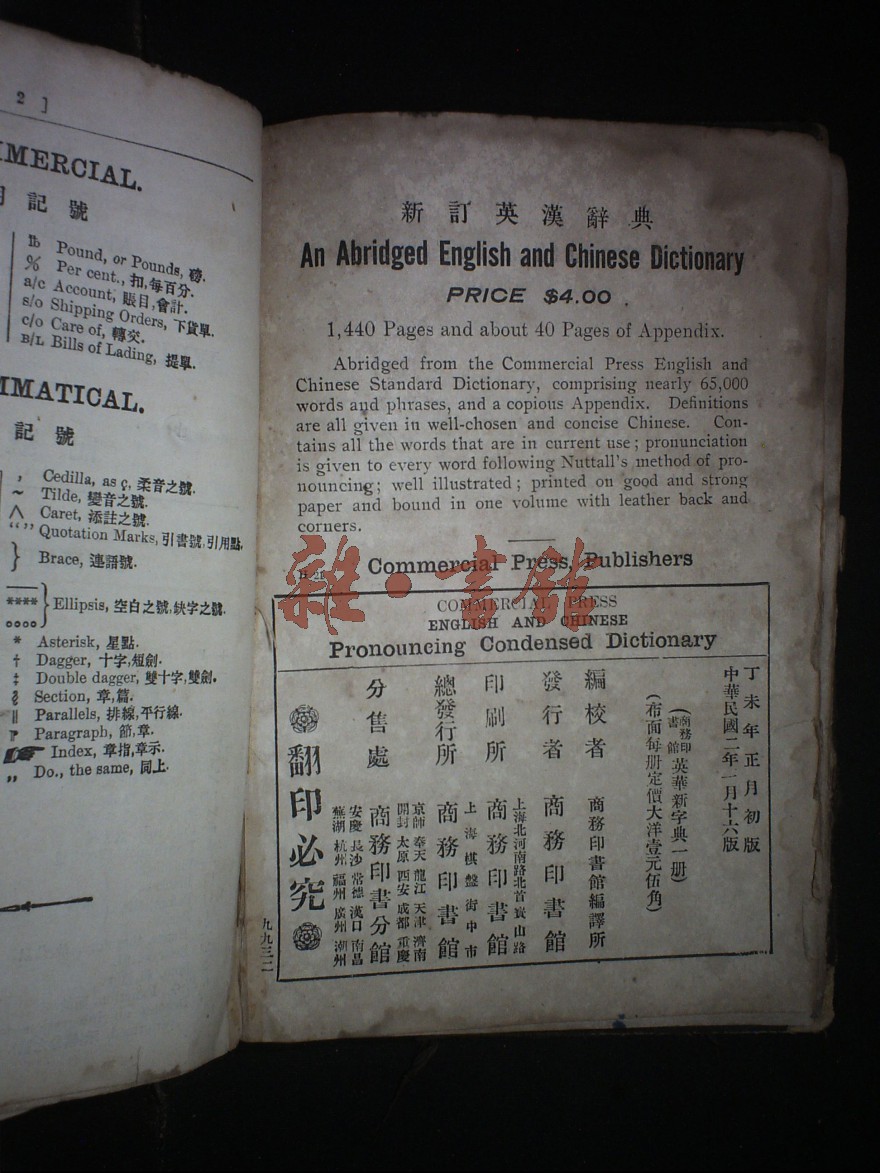 2 ]
MMERCIAL.
用記號
lb Pound, or Pounds, 磅.
% Per cent., 扣,每百分.
a/c Account, 賬目,會計.
s/o Shipping Orders, 下貨單.
c/o Care of, 轉交.
B/L Bills of Lading, 提單.
MMATICAL.
記號
¸ Cedilla, as ç, 柔音之號.
~ Tilde, 變音之號.
∧ Caret, 添註之號.
“ ” Quotation Marks, 引書號,引用點.
} Brace, 連語號.
**** } Ellipsis, 空白之號,缺字之號.
* Asterisk, 星點.
† Dagger, 十字,短劍.
‡ Double dagger, 雙十字,雙劍.
§ Section, 章,篇.
‖ Parallels, 排線,平行線.
¶ Paragraph, 節,章.
☛ Index, 章指,章示.
„ Do., the same, 同上.
新訂英漢辭典
An Abridged English and Chinese Dictionary
PRICE $4.00
1,440 Pages and about 40 Pages of Appendix.
Abridged from the Commercial Press English and
Chinese Standard Dictionary, comprising nearly 65,000
words and phrases, and a copious Appendix. Definitions
are all given in well-chosen and concise Chinese. Con-
tains all the words that are in current use; pronunciation
is given to every word following Nuttall's method of pro-
nouncing; well illustrated; printed on good and strong
paper and bound in one volume with leather back and
corners.
Commercial Press, Publishers
雜·書館
COMMERCIAL PRESS
ENGLISH AND CHINESE
Pronouncing Condensed Dictionary
丁未年正月初版
中華民國二年一月十六版
(商務印書館英華新字典一册)
(布面每册定價大洋壹元伍角)
編校者 商務印書館編譯所
發行者 商務印書館
上海北河南路北首寶山路
印刷所 商務印書館
上海棋盤街中市
總發行所 商務印書館
京師 奉天 龍江 天津 濟南
開封 太原 西安 成都 重慶
分售處 商務印書分館
安慶 長沙 常德 漢口 南昌
蕪湖 杭州 福州 廣州 潮州
翻印必究
九九三二